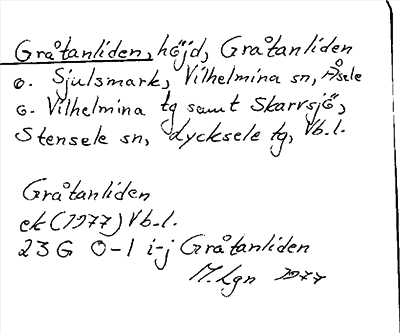 Gråtanliden, höjd, Gråtanliden
o. Sjulsmark, Vilhelmina sn, Åsele
o. Vilhelmina tg samt Skarvsjö,
Stensele sn, Lycksele tg, Vb.l.
Gråtanliden
ek (1977) Vb-l.
23 G 0-1 i-j Gråtanliden
M.Lgn 1977